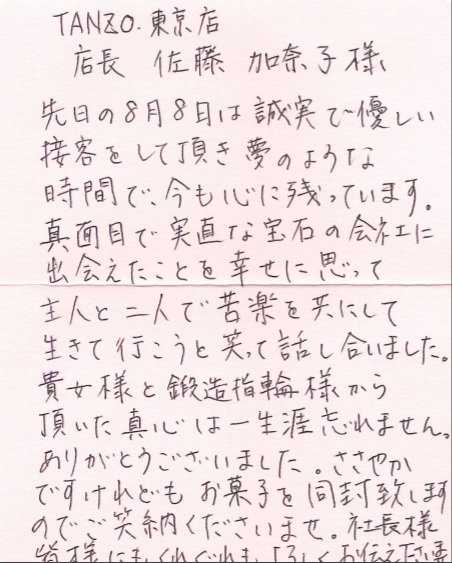 TANZO. 東京店
店長 佐藤 加奈子様
先日の8月8日は誠実で優しい
接客をして頂き夢のような
時間で、今も心に残っています。
真面目で実直な宝石の会社に
出会えたことを幸せに思って
主人と二人で苦楽を共にして
生きて行こうと笑って話し合いました。
貴女様と鍛造指輪様から
頂いた真心は一生涯忘れません。
ありがとうございました。ささやか
ですけれどもお菓子を同封致します
のでご笑納くださいませ。社長様
皆様にもくれぐれもよろしくお伝え